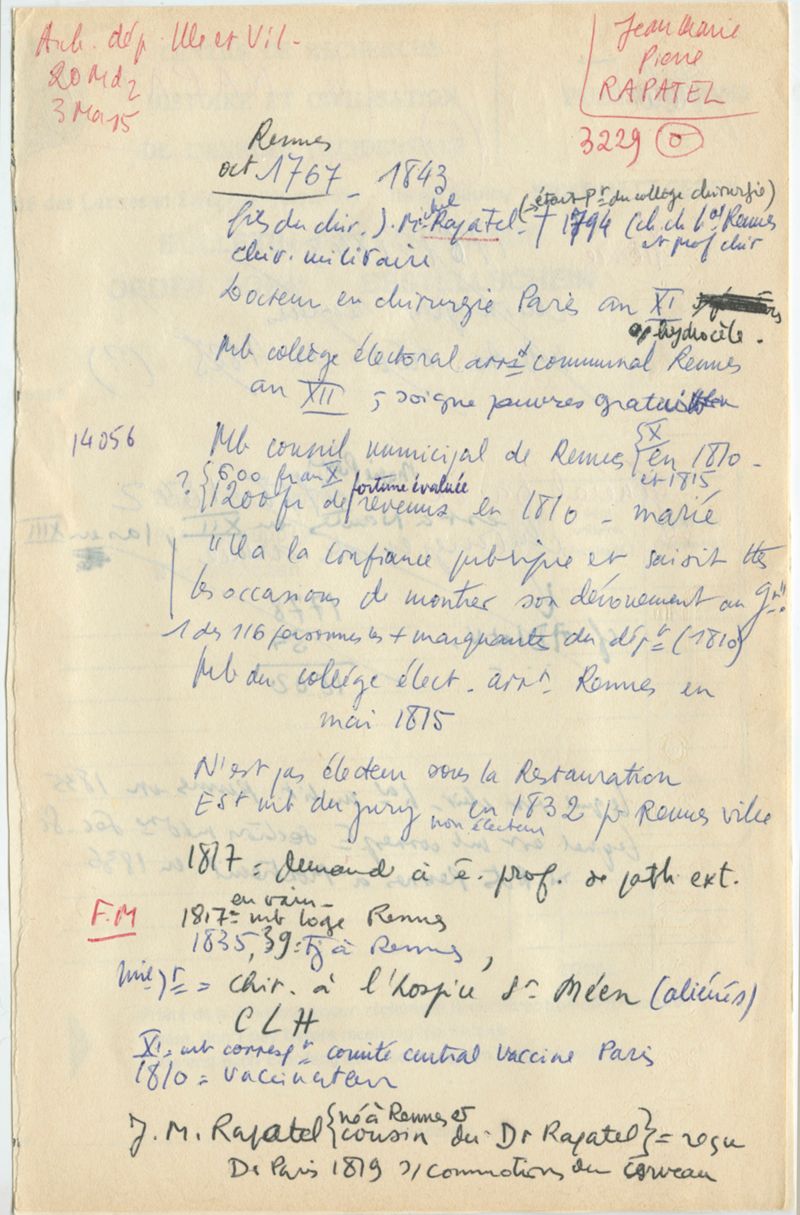 Arch. dép. Ille et Vil.
20 Md2
3 Ma 15
Jean Marie
Pierre
RAPATEL
3229 O
Rennes
oct 1767 - 1843
(était Pr du collège chirurgie)
fils du chir. J. M. Rapatel † 1794 (ch. de l' Rennes
et prof chir
chir. militaire
Docteur en chirurgie Paris an XI
hydrocèle.
Mb collège électoral arrt communal Rennes
an XII ; soigne pauvres gratuitem
14056
Mb conseil municipal de Rennes { X en 1810 -
et 1815
? { 600 fr an X fortune évaluée
{ 1200 fr de revenus en 1810 - marié
"Il a la confiance publique et saisit ttes
les occasions de montrer son dévouement au Gt"
1 des 116 personnes les + marquantes du dépt (1810)
Mb du collège élect. arrt. Rennes en
mai 1815
N'est pas électeur sous la Restauration
Est mb du jury non électeur en 1832 pr Rennes ville
1817 = demand à ê. prof. de path ext.
en vain -
F.M 1817 = mb loge Rennes
1835, 39 = Tj à Rennes,
= chir. à l'hospice St Méen (aliénés)
CLH
XI = mb correspt comité central vaccine Paris
1810 = vaccinateur
J. M. Rapatel { né à Rennes et cousin du Dr Rapatel } = reçu
Dr Paris 1819 s/ commotions du cerveau